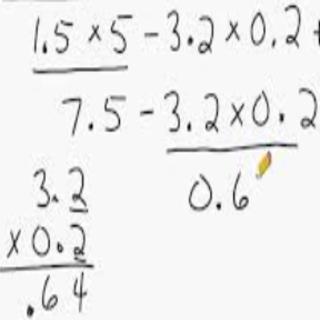 1.5 × 5 - 3.2 × 0.2 +
7.5 - 3.2 × 0.2
0.6
3.2
× 0.2
.64